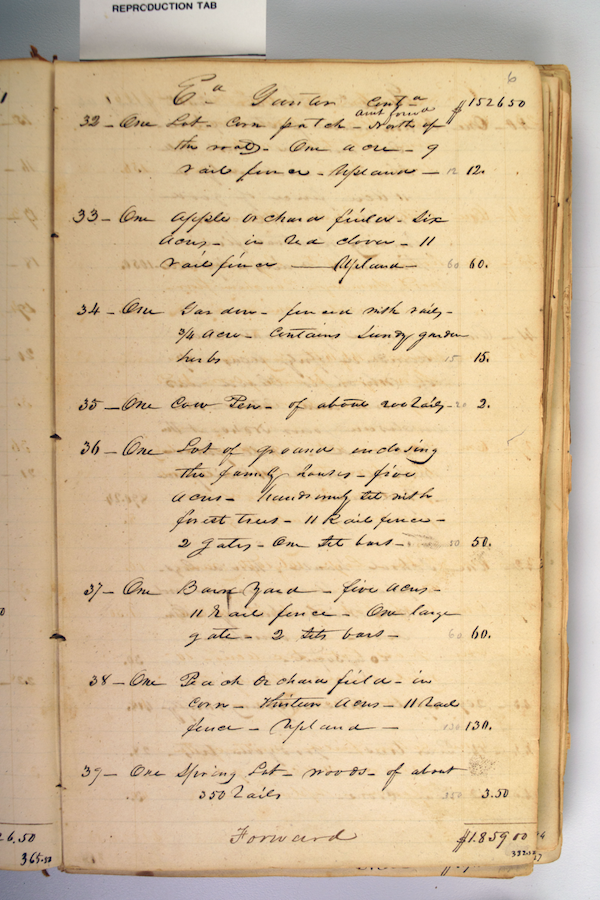 REPRODUCTION TAB
6
Ea Gunter Contd
amt forwd $1526 50
32 - One Lot - Corn patch - North of
the road - One acre - 9
rail fence - Upland - 12 12.
33 - One Apple Orchard field - Six
Acres - in red clover - 11
rail fence - Upland - 60 60.
34 - One Garden - fenced with rails -
3/4 acre - Contains Sundry garden
herbs 15 15.
35 - One Cow Pen - of about 200 rails - 2.
36 - One Lot of ground enclosing
the family houses - five
acres - handsomely set with
forest trees - 11 Rail fence -
2 gates - One set bars - 50 50.
37 - One Barn Yard - five acres -
11 Rail fence - One large
gate - 2 sets bars - 60 60.
38 - One Peach Orchard field - in
corn - thirteen Acres - 11 Rail
fence - Upland - 130 130.
39 - One Spring Lot - woods - of about
350 rails 350 3.50
Forward $1.859 00
26.50
365.50